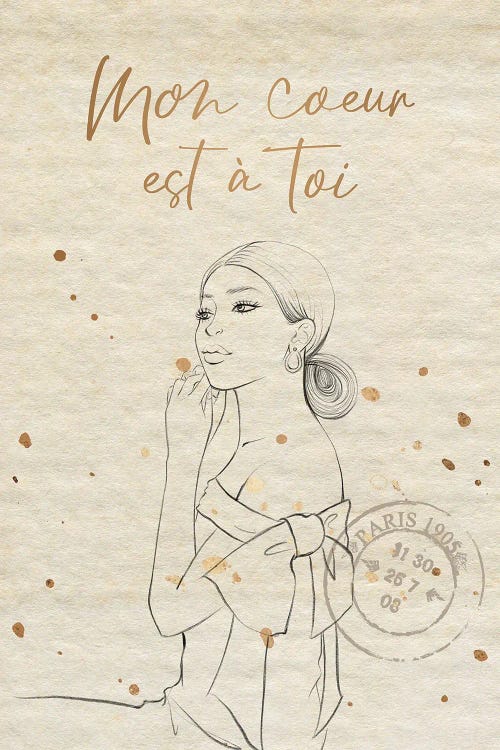 Mon coeur
est à toi
PARIS 1905
11 30
26 7
08